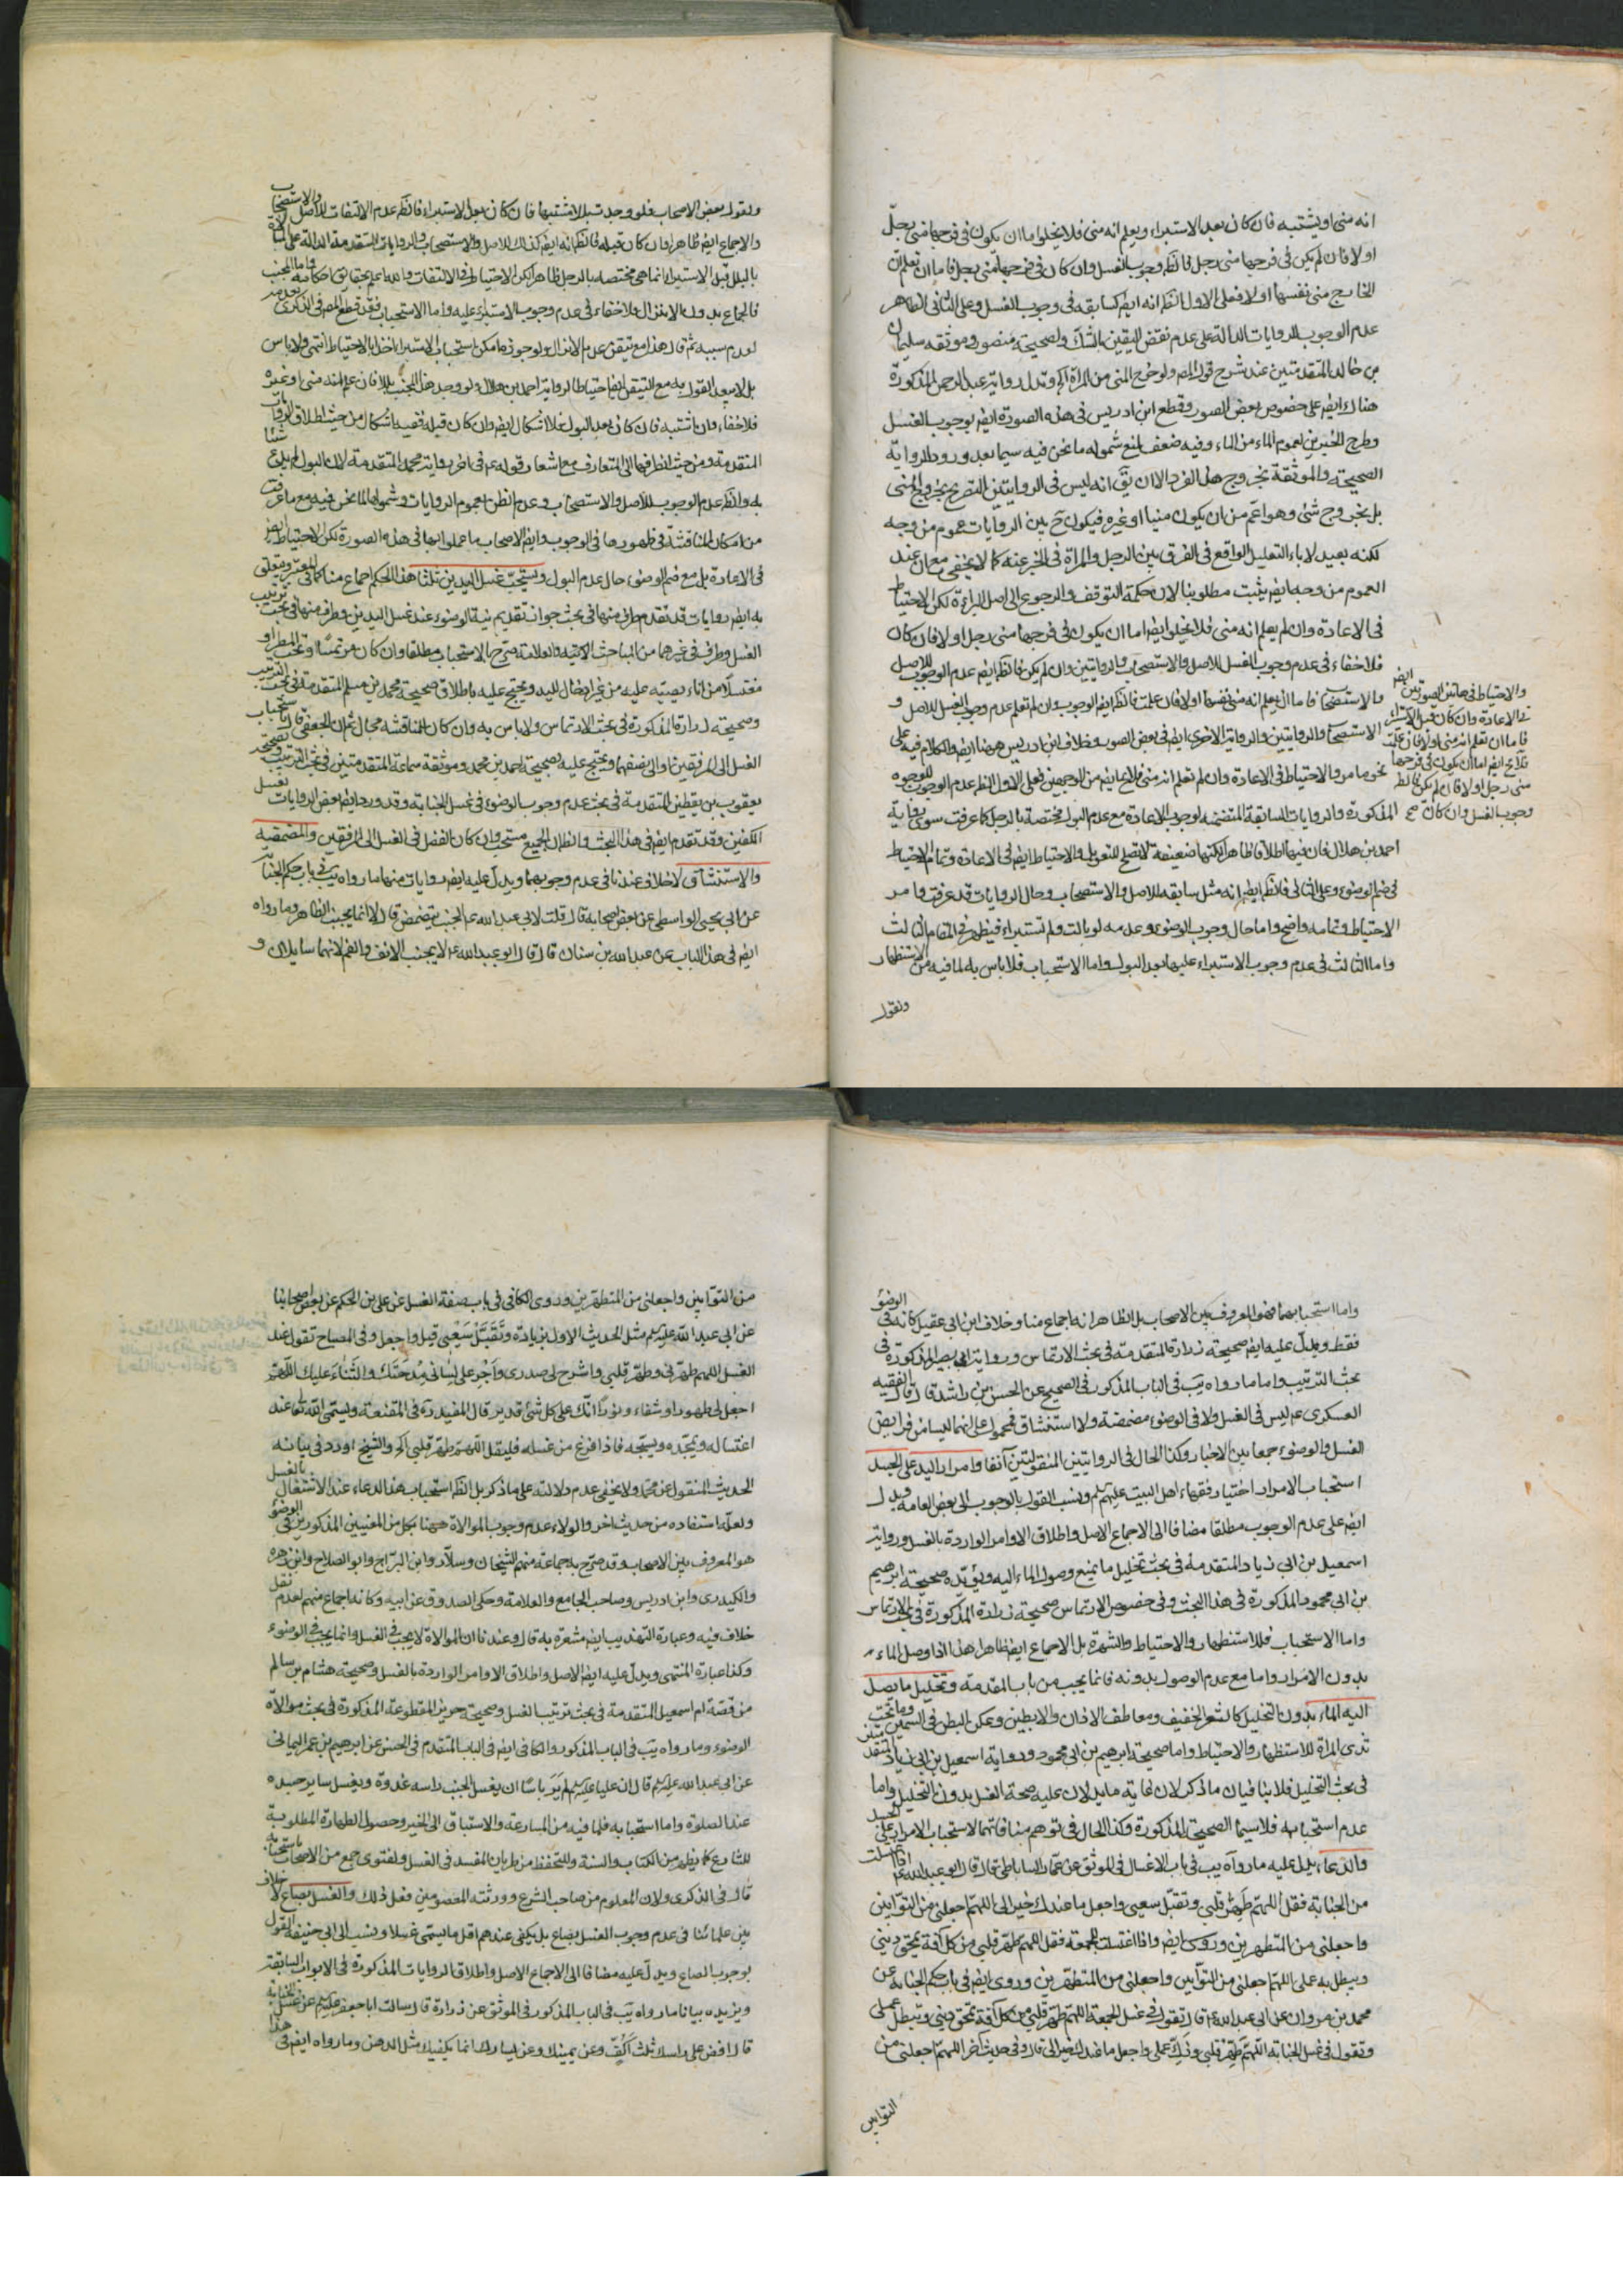 انه مني او يشتبه فان كان بعد الاستبراء ويعلم انه مني فلا يخلوا ما ان يكون في فرجها مني رجل
او لا فان لم يكن في فرجها مني رجل فالظ وجوب الغسل وان كان في فرجها مني رجل فاما ان تعلم ان
الخارج مني نفسها او لا فعلى الاول الظ انه ايض كسابقه في وجوب الغسل وعلى الثاني الظاهر
عدم الوجوب للروايات الدالة على عدم نقض اليقين بالشك ولصحيحة منصور وموثقه سليمان
بن خالد المتقدمتين عند شرح قول المص ولو خرج المني من المراة اه وتدل رواية عبد الرحمن المذكورة
هناك ايض على خصوص بعض الصور وقطع ابن ادريس في هذه الصورة ايض بوجوب الغسل
وطرح الخبرين لعموم الماء من الماء وفيه ضعف لمنع شموله ما نحن فيه سيما بعد ورود الرواية
الصحيحة والموثقة بخروج هذا الفرد الا ان يق انه ليس في الروايتين التصريح بخروج المني
بل بخروج شئ وهو اعم من ان يكون منيا او غيره فيكون ح بين الروايات عموم من وجه
لكنه بعيد لاباء التعليل الواقع في الفرق بين الرجل والمراة في الخبر عنه كما لا يخفى مع ان عند
العموم من وجه ايض يثبت مطلوبنا لان حكمة التوقف والرجوع الى اصل البراءة لكن الاحتياط
في الاعادة وان لم يعلم انه مني فلا يخلوا ايض اما ان يكون في فرجها مني رجل او لا فان كان
فلا خفاء في عدم وجوب الغسل للاصل والاستصحاب والروايتين وان لم يكن فالظ ايض عدم الوجوب للاصل
والاستصحاب فاما ان يعلم انه مني نفسها او لا فان علمت فالظ ايض الوجوب وان لم تعلم عدم وجوب الغسل للاصل و
الاستصحاب والروايتين والرواية الاخرى ايض في بعض الصور وخلاف ابن ادريس ههنا ايض والكلام فيه على
نحو ما مر والاحتياط في الاعادة وان لم تعلم انه مني فلا يخلو ايض من الوجهين فعلى الاول الظ عدم الوجوب للوجوه
المذكورة والروايات السابقة المتضمنه لوجوب الاعادة مع عدم البول مختصة بالرجل كما عرفت سوى رواية
احمد بن هلال فان فيها اطلاقا ظاهرا لكنها ضعيفة لا تصلح للتعويل والاحتياط ايض في الاعادة وتمام الاحتياط
في ضم الوضوء وعلى الثاني فالظ ايض انه مثل سابقه للاصل والاستصحاب وحال الروايات قد عرفت وامر
الاحتياط وتمامه واضح واما حال وجوب الوضوء وعدمه لو بالت ولم تستبراء فيظهر في المقام الثالث
واما الثالث في عدم وجوب الاستبراء عليها بعد البول واما الاستحباب فلا باس به لما فيه من الاستظهار
ونقول
والاحتياط في هاتين الصورتين ايض
في الاعادة وان كان قبل الاستبراء
فاما ان تعلم انه مني او لا فان علمت
فلا يخ ايض اما ان يكون في فرجها
مني رجل او لا فان لم يكن فالظ
وجوب الغسل وان كان صح
ونقول بعض الاصحاب فلو وجدت بللا مشتبها فان كان بعد الاستبراء فالظ عدم الالتفات للاصل والاستصحاب
والاجماع ايض ظاهرا وان كان قبله فالظ انه ايض كذلك للاصل والاستصحاب والروايات المتقدمة الدالة على
بالبلل قبل الاستبراء انما هي مختصه بالرجل ظاهرا لكن الاحتياط في الالتفات والله اعلم بحقايق احكامه واما المجنب
فالجماع بدون الانزال فلا خفاء في عدم وجوب الاستبراء عليه واما الاستحباب فقد قطع المص في الذكرى بعدمه
لعدم سببه ثم قال هذا مع تيقن عدم الانزال ولو جوز امكن استحباب الاستبراء اخذا بالاحتياط انتهى ولا باس
بل لا يبعد القول به مع التيقن ايض احتياطا لرواية احمد بن هلال ولو وجد هذا المجنب بللا فان علم انه مني او غيره
فلا خفاء وان اشتبه فان كان بعد البول فلا اشكال ايض وان كان قبله ففيه اشكال من حيث اطلاق الروايات
المتقدمة ومن حيث انصرافها الى المتعارف مع اشعار قوله ع في اخر رواية محمد المتقدمة لان البول لم يدع شيئا
به والظ عدم الوجوب للاصل والاستصحاب وعدم الظن بعموم الروايات وشمولها لما نحن فيه مع ما عرفت
من امكان المناقشة في ظهورها في الوجوب وايض الاصحاب ما عملوا بها في هذه الصورة لكن الاحتياط ايض
في الاعادة بل مع ضم الوضوء حال عدم البول ويستحب غسل اليدين ثلثا هذا الحكم اجماع منا كما في المعتبر ويتعلق
به ايض روايات قد تقدم طرف منها في بحث جواز تقديم نية الوضوء عند غسل اليدين وطرف منها في بحث ترتيب
الغسل وطرف في غيرهما من المباحث الاتية والعلامة صرح بالاستحباب مطلقا وان كان مرتمسا او تحت المطر او
مغتسلا من اناء يصبه عليه من غير ادخال لليد ويحتج عليه باطلاق صحيحة محمد بن مسلم المتقدمة في بحث الترتيب
وصحيحة زرارة المذكورة في بحث الارتماس ولا باس به وان كان للمناقشة مجال ثم ان الجعفي قال باستحباب
الغسل الى المرفقين او الى نصفهما ويحتج عليه بصحيحة احمد بن محمد وموثقة سماعة المتقدمتين في بحث الترتيب
يعقوب بن يقطين المتقدمة في بحث عدم وجوب الوضوء في غسل الجنابة وقد ورد ايض بعض الروايات بغسل
الكفين وقد تقدم ايض في هذا البحث والظ ان الجميع مستحب وان كان الفضل في الغسل الى المرفقين والمضمضة
والاستنشاق لا خلاف عندنا في عدم وجوبهما ويدل عليه ايض روايات منها ما رواه يب في باب حكم الجنابة
عن ابي يحيى الواسطي عن بعض اصحابه قال قلت لابي عبد الله ع الجنب يتمضمض قال لا انما يجنب الظاهر وما رواه
ايض في هذا الباب عن عبد الله بن سنان قال قال ابو عبد الله ع لا يجنب الانف والفم لانهما سايلان و
واما استحبابهما فهو المعروف بين الاصحاب بل الظاهر انه اجماع منا وخلاف ابن ابي عقيل كانه في الوضوء
فقط ويدل عليه ايض صحيحة زرارة المتقدمة في بحث الارتماس ورواية ابي بصير المذكورة في
بحث الترتيب واما ما رواه يب في الباب المذكور في الصحيح عن الحسن بن راشد قال قال الفقيه
العسكري ع ليس في الغسل ولا في الوضوء مضمضة ولا استنشاق فمحمول على انهما ليسا من فرايض
الغسل والوضوء جمعا بين الاخبار وكذا الحال في الروايتين المنقولتين آنفا وامرار اليد على الجسد
استحباب الامرار اختيار فقهاء اهل البيت عليهم السلم ونسب القول بالوجوب الى بعض العامة ويدل
ايض على عدم الوجوب مطلقا مضافا الى الاجماع الاصل واطلاق الاوامر الواردة بالغسل ورواية
اسمعيل بن ابي زياد المتقدمة في بحث تخليل ما يمنع وصول الماء اليه ويؤيده صحيحة ابرهيم
بن ابي محمود المذكورة في هذا البحث وفي خصوص الارتماس صحيحة زرارة المذكورة في بحث الارتماس
واما الاستحباب فللاستظهار والاحتياط والشهرة بل الاجماع ايض ظاهرا هذا اذا وصل الماء
بدون الامرار واما مع عدم الوصول بدونه فانما يجب من باب المقدمة وتخليل ما يصل
اليه الماء بدون التخليل كالشعر الخفيف ومعاطف الاذان والابطين وعكن البطن في السمين وما تحت
ثدي المراة للاستظهار والاحتياط واما صحيحة ابرهيم بن ابي محمود ورواية اسمعيل بن ابي زياد
في بحث التخليل فلا ينافيان ما ذكر لان غاية ما يدلان عليه صحة الغسل بدون التخليل واما
عدم استحبابه فلا سيما الصحيحة المذكورة وكذا الحال في توهم منافاتهما لاستحباب الامرار على الجسد
والدعاء يدل عليه ما رواه يب في باب الاغسال في الموثق عن عمار الساباطي قال قال ابو عبد الله ع اذا اغتسلت
من الجنابة فقل اللهم طهر قلبي وتقبل سعيي واجعل ما عندك خيرا لي اللهم اجعلني من التوابين
واجعلني من المتطهرين وروى ايض واذا اغتسلت للجمعة فقل اللهم طهر قلبي من كل آفة تمحق ديني
ويبطل به عملي اللهم اجعلني من التوابين واجعلني من المتطهرين وروى ايض في باب حكم الجنابة عن
محمد بن مروان عن ابي عبد الله ع قال تقول في غسل الجمعة اللهم طهر قلبي من كل آفة تمحق ديني وتبطل عملي
وتقول في غسل الجنابة اللهم طهر قلبي وزك عملي واجعل ما عندك خيرا لي قال وفي حديث آخر اللهم اجعلني من
التوابين
من التوابين واجعلني من المتطهرين وروى الكافي في باب صفة الغسل عن علي بن الحكم عن بعض اصحابنا
عن ابي عبد الله عليه السلم مثل الحديث الاول بزيادة وتقبل سعيي قبل واجعل وفي المصباح تقول عند
الغسل اللهم طهرني وطهر قلبي واشرح لي صدري واجر على لساني مدحتك والثناء عليك اللهم
اجعل لي طهورا وشفاء ونورا انك على كل شئ قدير قال المفيد ره في المقنعة ويسمي الله تعالى عند
اغتساله ويمجده ويسبحه فاذا فرغ من غسله فليقل اللهم طهر قلبي اه والشيخ اورد في بيانه
الحديث المنقول عن محمد ولا يخفى عدم دلالته على ما ذكر بل الظ استحباب هذا الدعاء عند الاشتغال بالغسل
ولعله استفاده من حديث اخر والولاء عدم وجوب الموالاة ههنا بكل من المعنيين المذكورين في الوضوء
هو المعروف بين الاصحاب وقد صرح به جماعة منهم الشيخان وسلار وابن البراج وابو الصلاح وابن زهره
والكيدري وابن ادريس وصاحب الجامع والعلامة وحكي الصدوق عن ابيه وكانه اجماع منهم لعدم نقل
خلاف فيه وعبارة التهذيب ايض مشعرة به قال وعندنا ان الموالاة لا يجب في الغسل وانما يجب في الوضوء
وكذا عبارة المنتهى ويدل عليه ايض الاصل واطلاق الاوامر الواردة بالغسل وصحيحة هشام بن سالم
من قصة ام اسمعيل المتقدمة في بحث ترتيب الغسل وصحيحة حريز المقطوعة المذكورة في بحث موالاة
الوضوء وما رواه يب في الباب المذكور والكافي ايض في الباب المتقدم في الحسن عن ابرهيم بن عمر اليماني
عن ابي عبد الله عليه السلم قال ان عليا عليه السلم لم ير باسا ان يغسل الجنب راسه غدوة ويغسل ساير جسده
عند الصلوة واما استحبابه فلما فيه من المسارعة والاستباق الى الخير وحصول الطهارة المطلوبة
للشارع كما يظهر من الكتاب والسنة وللتحفظ من طريان المفسد في الغسل ولفتوى جمع من الاصحاب باستحبابه
قال في الذكرى ولان المعلوم من صاحب الشرع وورثته المعصومين فعل ذلك والغسل بصاع لا خلاف
بين علمائنا في عدم وجوب الغسل بصاع بل يكفي عندهم اقل ما يسمى غسلا ونسب الى ابي حنيفه القول
بوجوب الصاع ويدل عليه مضافا الى الاجماع الاصل واطلاق الروايات المذكورة في الابواب السابقة
ويزيده بيانا ما رواه يب في الباب المذكور في الموثق عن زرارة قال سالت ابا جعفر عليه السلم عن غسل الجنابة
قال افض على راسك ثلث اكف وعن يمينك وعن يسارك انما يكفيك مثل الدهن وما رواه ايض في هذا